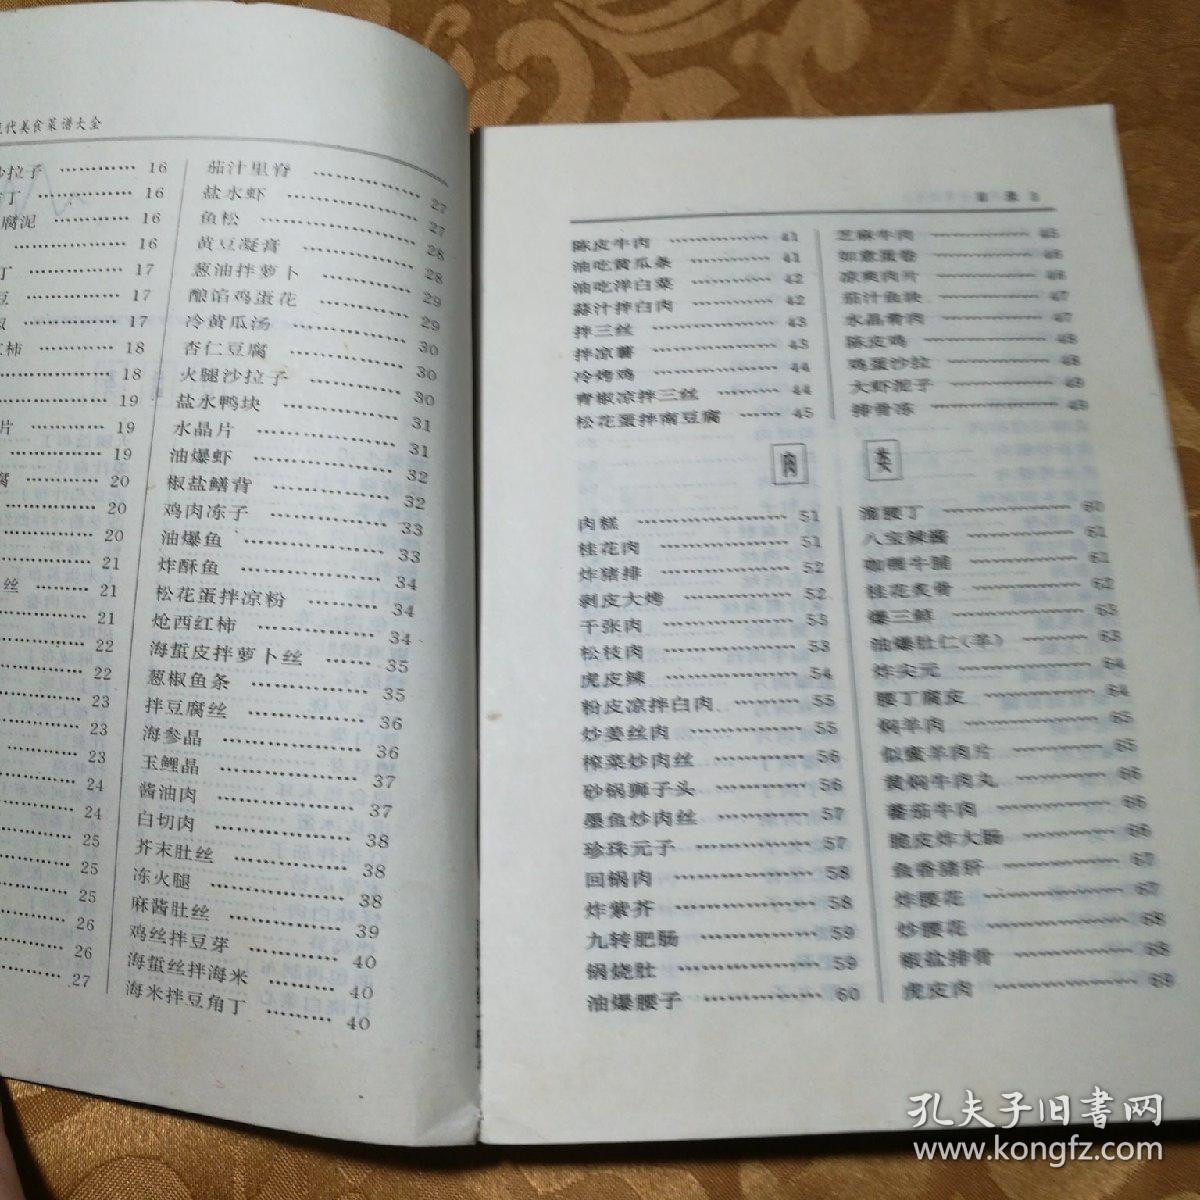 代美食菜谱大全
沙拉子 ………… 16
丁 ………… 16
腐泥 ………… 16
………… 16
丁 ………… 17
豆 ………… 17
椒 ………… 17
柿 ………… 18
………… 18
………… 19
片 ………… 19
………… 19
腐 ………… 20
………… 20
………… 20
………… 21
丝 ………… 21
………… 21
………… 22
………… 22
………… 23
………… 23
………… 23
………… 24
………… 24
………… 25
………… 25
………… 25
………… 26
………… 26
………… 27
茄汁里脊 ………… 27
盐水虾 ………… 27
鱼松 ………… 28
黄豆凝膏 ………… 28
葱油拌萝卜 ………… 29
酿馅鸡蛋花 ………… 29
冷黄瓜汤 ………… 30
杏仁豆腐 ………… 30
火腿沙拉子 ………… 30
盐水鸭块 ………… 31
水晶片 ………… 31
油爆虾 ………… 32
椒盐鳝背 ………… 32
鸡肉冻子 ………… 33
油爆鱼 ………… 33
炸酥鱼 ………… 34
松花蛋拌凉粉 ………… 34
炝西红柿 ………… 34
海蜇皮拌萝卜丝 ………… 35
葱椒鱼条 ………… 35
拌豆腐丝 ………… 36
海参晶 ………… 36
玉鲤晶 ………… 37
酱油肉 ………… 37
白切肉 ………… 38
芥末肚丝 ………… 38
冻火腿 ………… 38
麻酱肚丝 ………… 39
鸡丝拌豆芽 ………… 40
海蜇丝拌海米 ………… 40
海米拌豆角丁 ………… 40
目 录 3
陈皮牛肉 ………… 41
油吃黄瓜条 ………… 41
油吃洋白菜 ………… 42
蒜汁拌白肉 ………… 42
拌三丝 ………… 43
拌凉薯 ………… 43
冷烤鸡 ………… 44
青椒凉拌三丝 ………… 44
松花蛋拌南豆腐 ………… 45
芝麻牛肉 ………… 45
如意蛋卷 ………… 46
凉爽肉片 ………… 46
茄汁鱼块 ………… 47
水晶肴肉 ………… 47
陈皮鸡 ………… 48
鸡蛋沙拉 ………… 48
大虾泥子 ………… 49
排骨冻 ………… 49
肉 类
肉糕 ………… 51
桂花肉 ………… 51
炸猪排 ………… 52
剥皮大烤 ………… 52
千张肉 ………… 53
松枝肉 ………… 53
虎皮辣 ………… 54
粉皮凉拌白肉 ………… 55
炒姜丝肉 ………… 55
榨菜炒肉丝 ………… 56
砂锅狮子头 ………… 56
墨鱼炒肉丝 ………… 57
珍珠元子 ………… 57
回锅肉 ………… 58
炸紫芥 ………… 58
九转肥肠 ………… 59
锅烧肚 ………… 59
油爆腰子 ………… 60
溜腰丁 ………… 60
八宝辣酱 ………… 61
咖喱牛脯 ………… 61
桂花炙骨 ………… 62
爆三鲜 ………… 63
油爆肚仁(羊) ………… 63
炸尖元 ………… 64
腰丁腐皮 ………… 64
焖羊肉 ………… 65
似蜜羊肉片 ………… 65
黄焖牛肉丸 ………… 66
蕃茄牛肉 ………… 66
脆皮炸大肠 ………… 66
鱼香猪肝 ………… 67
炸腰花 ………… 67
炒腰花 ………… 68
椒盐排骨 ………… 68
虎皮肉 ………… 69
孔夫子旧书网
www.kongfz.com